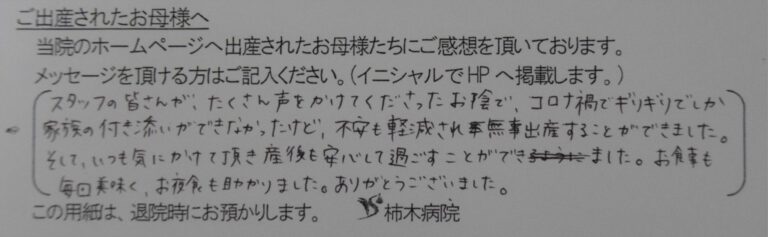 ご出産されたお母様へ
当院のホームページへ出産されたお母様たちにご感想を頂いております。
メッセージを頂ける方はご記入ください。(イニシャルでHPへ掲載します。)
スタッフの皆さんが、たくさん声をかけてくださったお陰で、コロナ禍でギリギリでしか
家族の付き添いができなかったけど、不安も軽減され無事出産することができました。
そして、いつも気にかけて頂き産後も安心して過ごすことができました。お食事も
毎回美味く、お夜食も助かりました。ありがとうございました。
この用紙は、退院時にお預かりします。 柿木病院